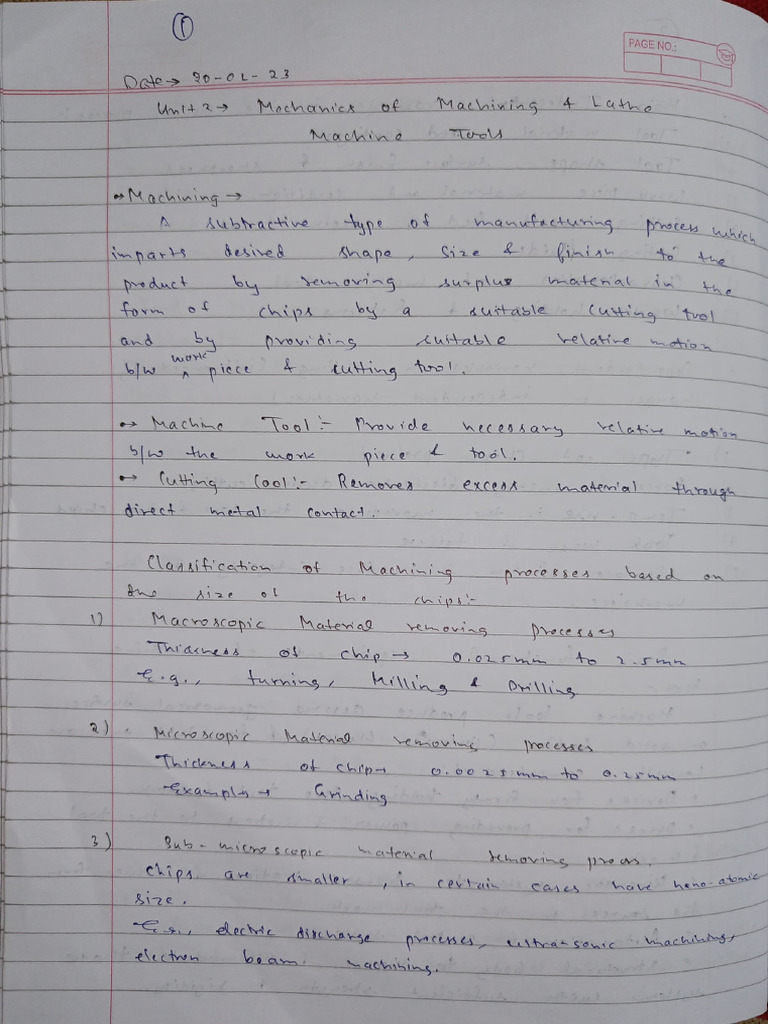 1
PAGE NO.:
Date → 20-02-23
Unit 2 → Mechanics of Machining & Lathe
Machine Tools
→ Machining →
A subtractive type of manufacturing process which
imparts desired shape, size & finish to the
product by removing surplus material in the
form of chips by a suitable cutting tool
and by providing suitable relative motion
b/w work piece & cutting tool.
→ Machine Tool:- Provide necessary relative motion
b/w the work piece & tool.
→ Cutting Cool:- Removes excess material through
direct metal contact.
Classification of Machining processes based on
the size of the chips:-
1) Macroscopic Material removing processes
Thickness of chip → 0.025mm to 2.5mm
E.g., turning, Milling & Drilling
2) Microscopic Material removing processes
Thickness of chip → 0.0025mm to 0.25mm
Example → Grinding
3) Sub-microscopic material removing proces.
Chips are smaller, in certain cases have nano-atomic
size.
E.g., electric discharge processes, ultra-sonic machining,
electron beam machining.